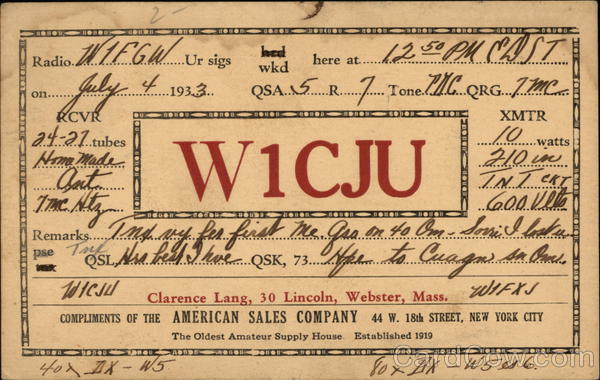 2-
Radio W1FGW Ur sigs hrd wkd here at 12 50 PM EDST
on July 4 1933 QSA 5 R 7 Tone PDC QRG 7 mc
RCVR
24-27 tubes
Home Made
Ant.
7 mc Htz
W1CJU
XMTR
10 watts
210 in
TNT CKT
600 Vlts
Remarks Tnx vy fer first Me Qso on 40 Om - Sorri I lost u
pse tnx QSL Hrs best I hve QSK, 73 Hpe to Cuagn sn Om.
W1CJU
W1FXJ
Clarence Lang, 30 Lincoln, Webster, Mass.
COMPLIMENTS OF THE AMERICAN SALES COMPANY 44 W. 18th STREET, NEW YORK CITY
The Oldest Amateur Supply House Established 1919
40x DX - W5
80x DX W5
CardCow.com